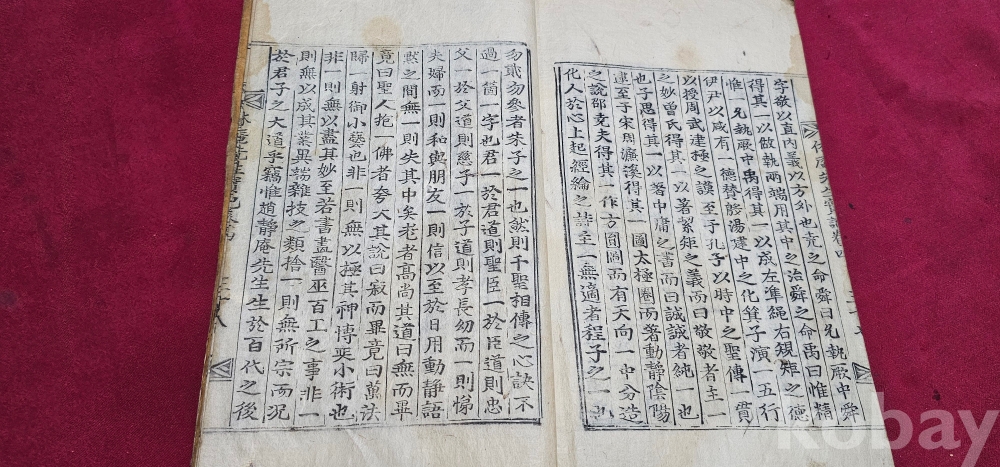 字敬以直內義以方外也堯之命舜曰允執厥中舜
得其一以做執兩端用其中之治舜之命禹曰惟精
惟一允執厥中禹得其一以成左準繩右規矩之德
伊尹以咸有一德贊殷湯建中之化箕子演一五行
以授周武建極之謨至于孔子以時中之聖傳一貫
之妙曾氏得其一以著絜矩之義而曰敬敬者主一
也子思得其一以著中庸之書而曰誠誠者純一也
逮至于宋周濂溪得其一圖太極圈而著動靜陰陽
之說邵堯夫得其一作方圓圖而有天向一中分造
化人於心上起經綸之詩至一無適者程子之一也
勿貳勿參者朱子之一也然則千聖相傳之心訣不
過一箇一字也君一於君道則聖臣一於臣道則忠
父一於父道則慈子一於子道則孝長幼而一則悌
夫婦而一則和與朋友一則信以至於日用動靜語
默之間無一則失其中矣老者高尙其道曰無而畢
竟曰聖人抱一佛者夸大其說曰寂而畢竟曰萬法
歸一射御小藝也非一則無以極其神博奕小術也
非一則無以盡其妙至若書畫醫巫百工之事非一
則無以成其業異端雜技之類捨一則無所宗而況
於君子之大道乎竊惟趙靜庵先生生於百代之後
kobay